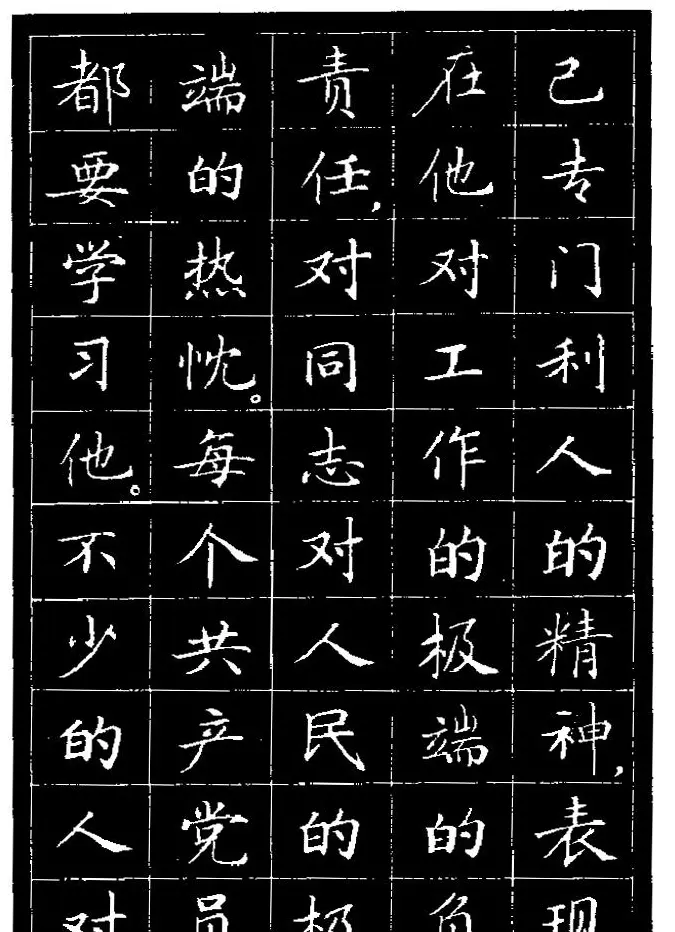 己专门利人的精神,表现
在他对工作的极端的负
责任,对同志对人民的极
端的热忱。每个共产党员
都要学习他。不少的人对